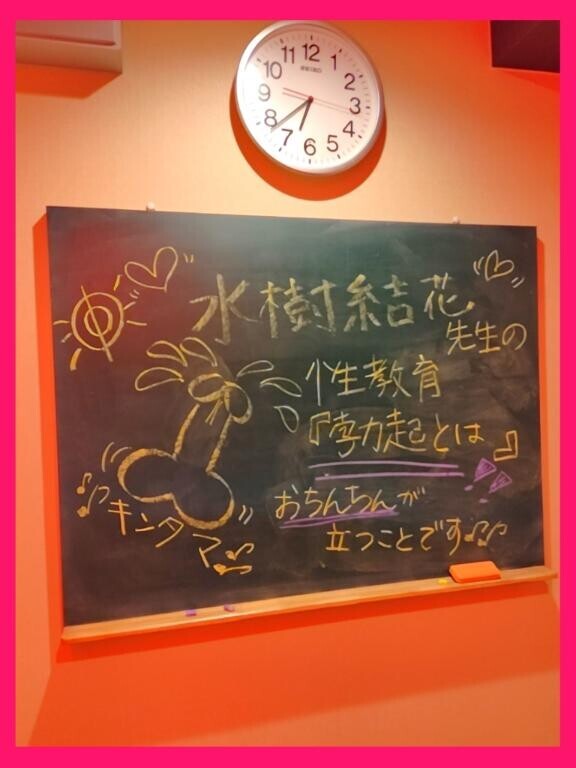 12
1
2
3
4
5
6
7
8
9
10
11
SEIKO
水樹結花
先生の
性教育
『勃起とは』
おちんちんが
立つことです♪♪
キンタマ♪